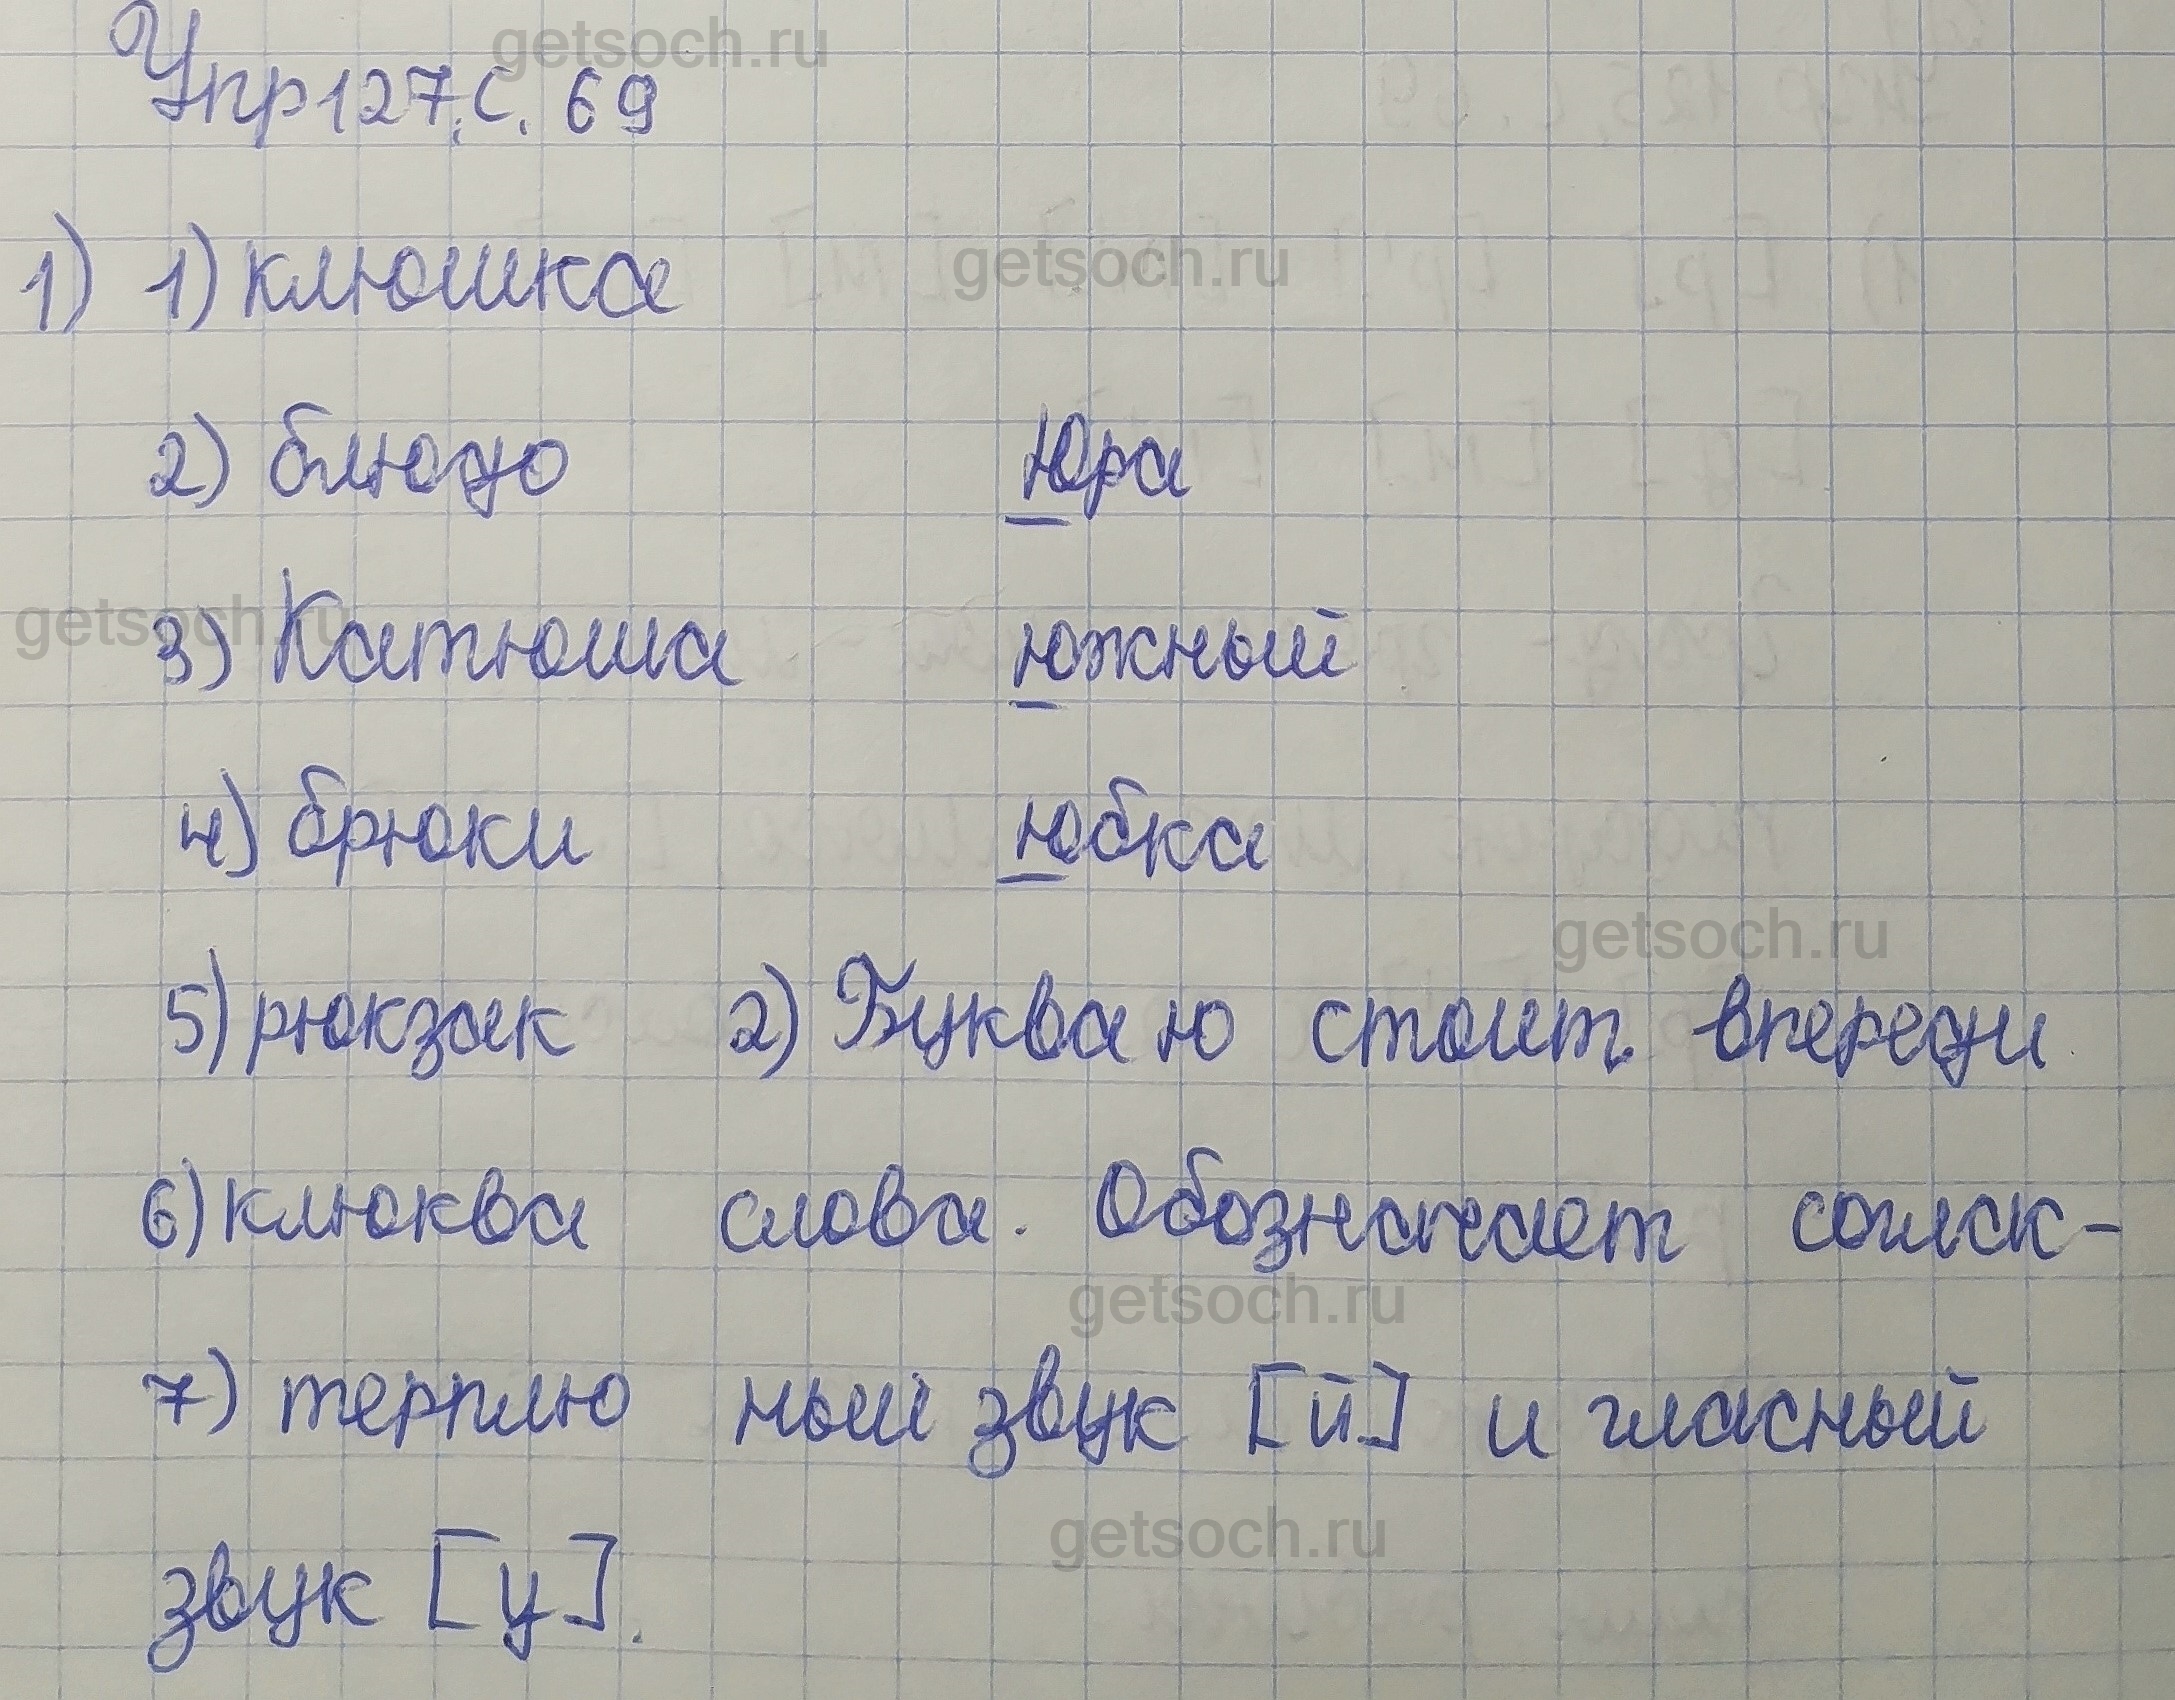 getsoch.ru
Упр 127, с. 69
1) 1) клюшка
getsoch.ru
2) блюдо Юра
getsoch.ru
3) Катюша южный
4) брюки юбка
getsoch.ru
5) рюкзак 2) Буква ю стоит впереди
6) клюква слова. Обозначает соглас-
getsoch.ru
7) терплю ный звук [й] и гласный
getsoch.ru
звук [у].